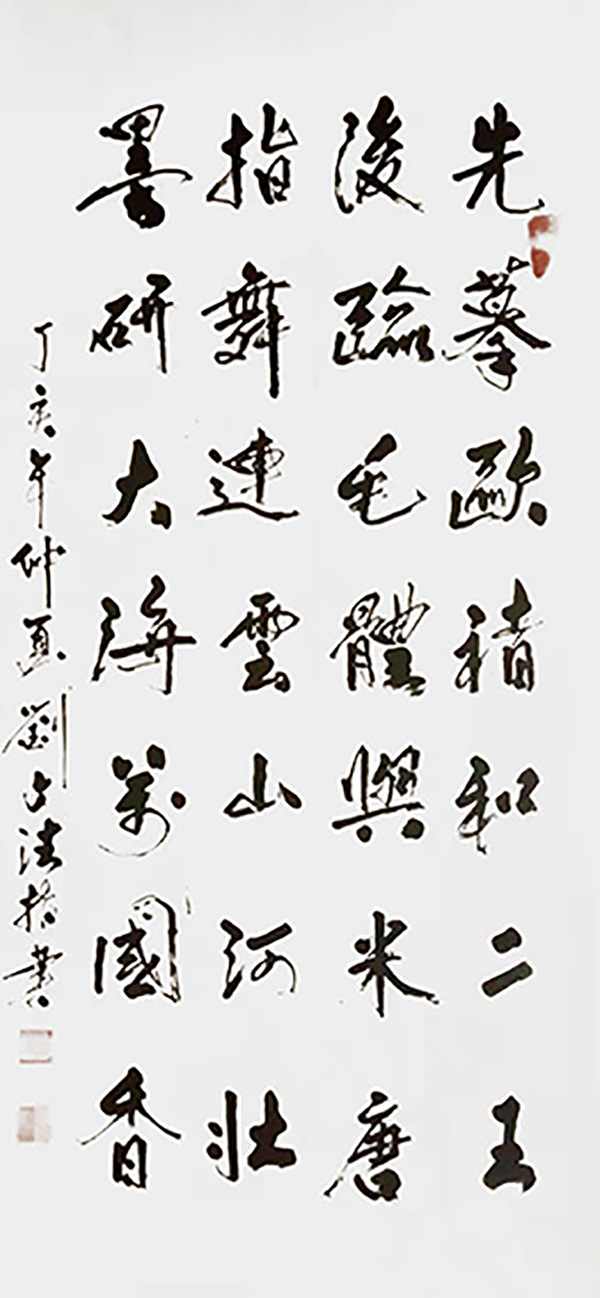 先摹歐積和二王
後臨毛體與米唐
指舞連雲山河壯
墨研大海萬國香
丁亥年仲夏劉占法指書